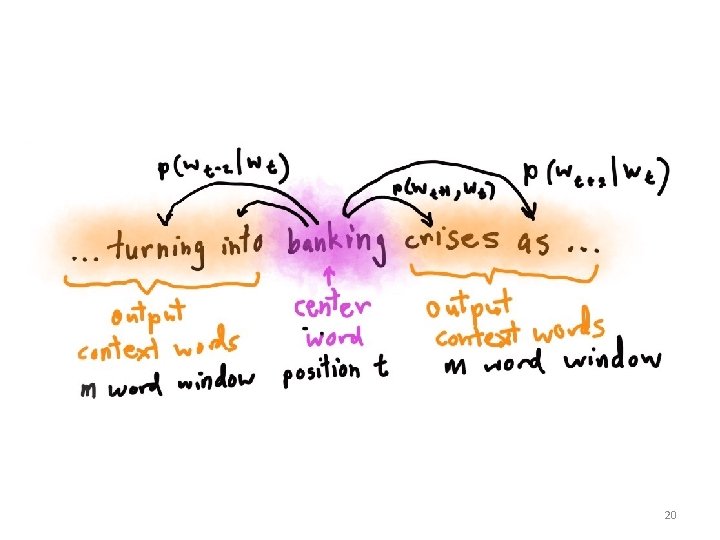 p(w t-2 | w t)
p(w t+1, w t)
p(w t+2 | w t)
... turning into banking crises as ...
output context words
m word window
center word
position t
output context words
m word window
20